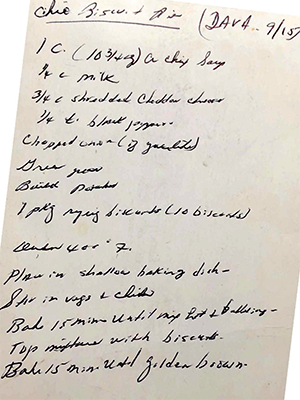 Chic Biscuit Pie (DAVA - 9/15)
1 C. (10 3/4 oz) Cr Chix Soup
1/4 c milk
3/4 c shredded Cheddar cheese
1/4 t. black pepper
Chopped onion (if you like)
Green peas
Boiled Potatoes
1 pkg biscuits (10 biscuits)
Oven 400° F.
Place in shallow baking dish -
Stir in vegs & Chic
Bake 15 min until mix hot & bubbling -
Top mixture with biscuits.
Bake 15 min until golden brown.